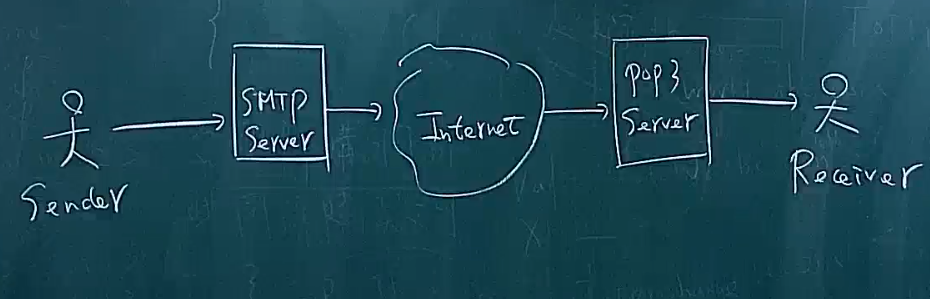 Sender
SMTP
Server
Internet
POP3
Server
Receiver